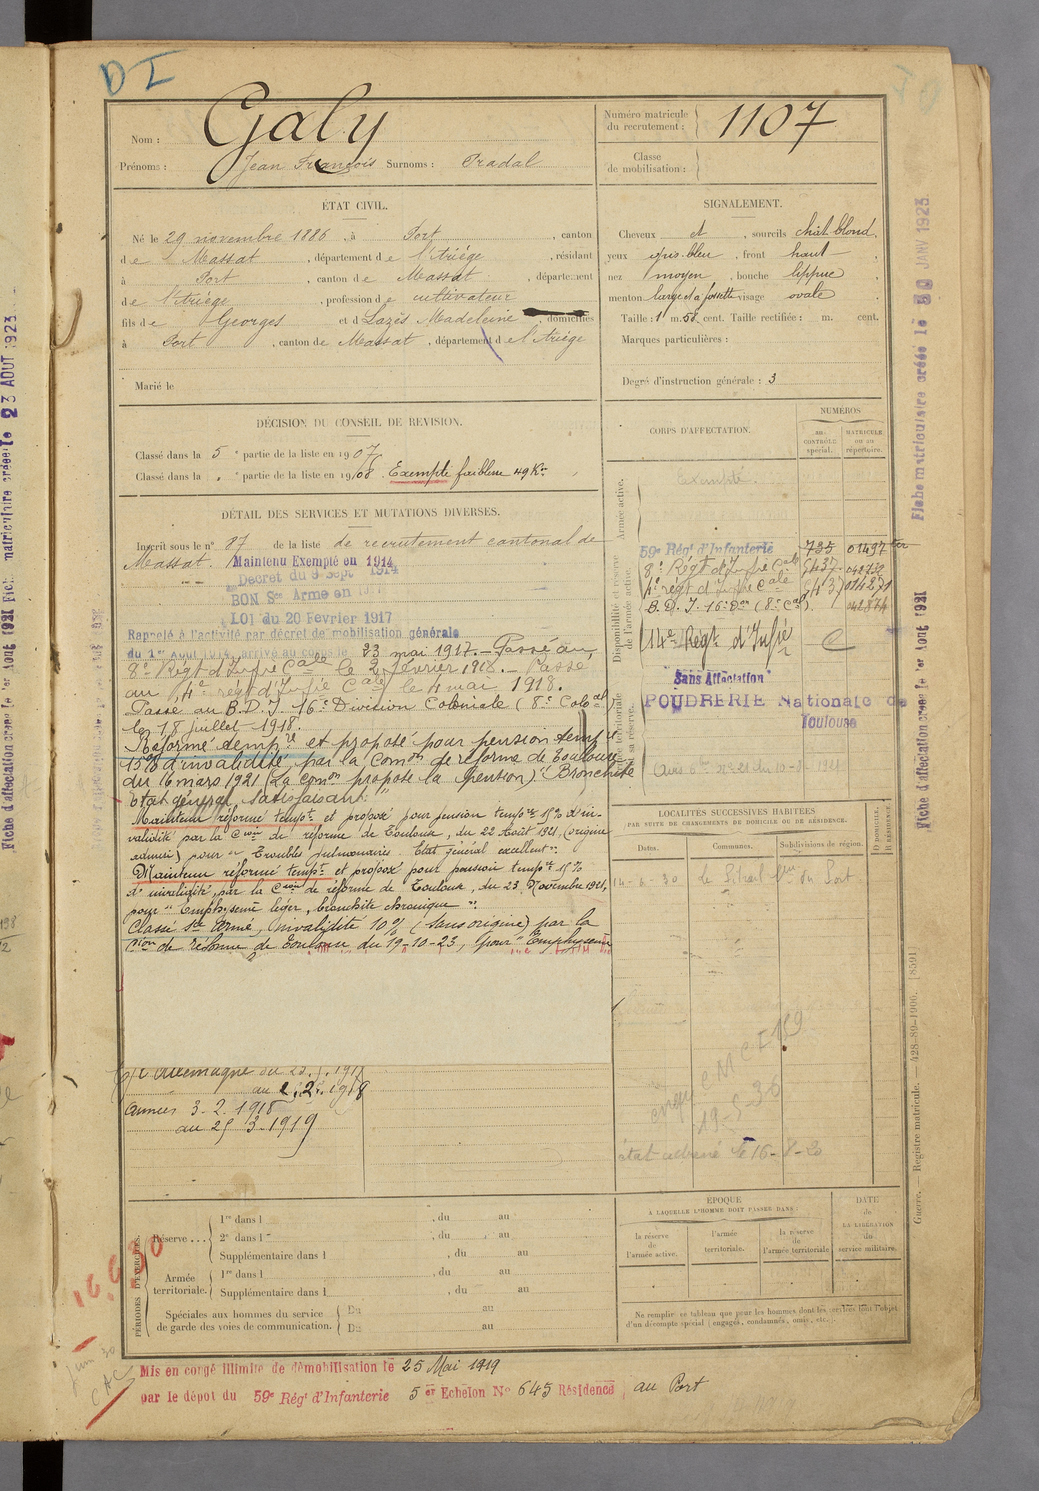 D I
Nom : Galy
Prénoms : Jean François Surnoms : Pradal
Numéro matricule du recrutement : 1107
Classe de mobilisation :
ÉTAT CIVIL.
Né le 29 novembre 1886, à Port, canton
de Massat, département de l'Ariège, résidant
à Port, canton de Massat, département
de l'Ariège, profession de cultivateur
fils de Georges et d Lazès Madeleine domiciliés
à Port, canton de Massat, département de l'Ariège
Marié le
SIGNALEMENT.
Cheveux et, sourcils chât. blond.
yeux gris-bleu, front haut
nez moyen, bouche lippue
menton large et à fossette visage ovale
Taille : 1 m. 58 cent. Taille rectifiée : m. cent.
Marques particulières :
Degré d'instruction générale : 3
DÉCISION DU CONSEIL DE REVISION.
Classé dans la 5e partie de la liste en 1907
Classé dans la e partie de la liste en 1908 Exempté faiblesse 49 Kos
DÉTAIL DES SERVICES ET MUTATIONS DIVERSES.
Inscrit sous le n° 87 de la liste de recrutement cantonal de
Massat. Maintenu Exempté en 1914
Decret du 9 Sept 1914
BON Sce Armé en 1917
LOI du 20 Fevrier 1917
Rappelé à l'activité par décret de mobilisation générale
du 1er Aout 1914, arrivé au corps le 23 mai 1917. – Passé au
8e Régt d'Infie Cale le 2 février 1918. – Passé
au 4e régt d'Infie Cale le 4 mai 1918.
Passé au B.D.I. 16e Division Coloniale (8e Colonal)
le 18 juillet 1918.
Réformé tempre et proposé pour pension tempre
15% d'invalidité par la Comon de réforme de Toulouse
du 16 mars 1921 (La Comon propose la pension) "Bronchite
Etat général satisfaisant"
Maintenu réformé tempre et proposé pour pension tempre 15% d'in-
validité par la Cmion de réforme de Toulouse, du 22 Août 1921, (origine
admise) pour "Troubles pulmonaires. Etat général excellent".
Maintenu réformé tempre et proposé pour pension tempre 15%
d'invalidité, par la Cmion de réforme de Toulouse, du 23 Novembre 1921,
pour "Emphysème léger, bronchite chronique".
Classé sce armé, invalidité 10% (sans origine) par la
Cion de réforme de Toulouse du 19-10-23, pour "Emphysème
C/ l'Allemagne du 23.5.1917
au 2.2.1918
Armées 3-2.1918
au 25 3-1919
CORPS D'AFFECTATION.
NUMÉROS
au CONTRÔLE spécial.
MATRICULE ou au répertoire.
Armée active.
exempté.
Disponibilité et réserve de l'armée active.
59e Régt d'Infanterie 735 01497 ter
8e Régt d'Infie Cale 5437
4e régt d'Infie Cale 5437 014371
B.D.I. 16e Don (8e Cal) 42874
14e Régt d'Infie C
Sans Affectation
POUDRERIE Nationale de
Toulouse
LOCALITÉS SUCCESSIVES HABITÉES
PAR SUITE DE CHANGEMENTS DE DOMICILE OU DE RÉSIDENCE.
Dates.
Communes.
Subdivisions de région.
D DOMICILE. R RÉSIDENCE.
14-6-30
19-5-36
le 16-8-20
PÉRIODES D'EXERCICES.
Réserve ...
1re dans l , du au
2e dans l , du au
Supplémentaire dans l , du au
Armée territoriale.
1re dans l , du au
Supplémentaire dans l , du au
Spéciales aux hommes du service de garde des voies de communication.
Du au
Du au
ÉPOQUE
À LAQUELLE L'HOMME DOIT PASSER DANS :
la réserve de l'armée active.
l'armée territoriale.
la réserve de l'armée territoriale
DATE de LA LIBÉRATION du service militaire.
Ne remplir ce tableau que pour les hommes dont les services font l'objet
d'un décompte spécial (engagés, condamnés, omis, etc.).
Mis en congé illimité de démobilisation le 25 Mai 1919
par le dépôt du 59e Régt d'Infanterie 5 er Echelon No 645 Résidence au Port
Fiche matriculaire créée le 30 JANV 1923
Fiche d'affectation créée le 1er Aout 1921
Guerre. — Registre matricule. — 428-89-1906. [8591]
Fiche d'affectation créée le 1er Aout 1921 Fich. matriculaire créée le 23 AOUT 1923
16.9.30
Juin 30
CAC